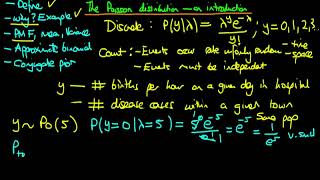 - Define
- Why? Example
- PMF, Mean, Variance
- Approximate binomial
- Conjugate prior
The Poisson distribution — an introduction
Discrete : P(y|λ) = λ^y e^-λ / y! , y = 0, 1, 2, 3..
Count : - Events occur rate uniformly random - time space
- Events must be independent
y — # births per hour on a given day in hospital
# disease cases within a given town
y ~ Po(5) P(y=0|λ=5) = 5^0 e^-5 / 0! = e^-5 = 1 / e^5
Same pop
v. small
P